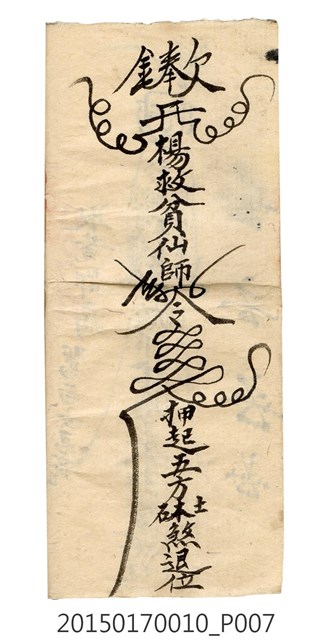 奉
楊救貧仙師
令
押起五方
土煞退位
20150170010_P007